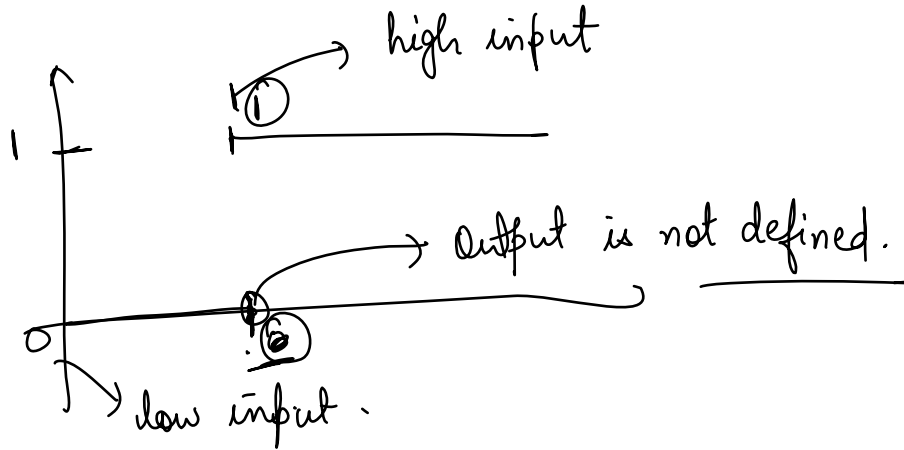 high input
1
1
Output is not defined.
0
low input.